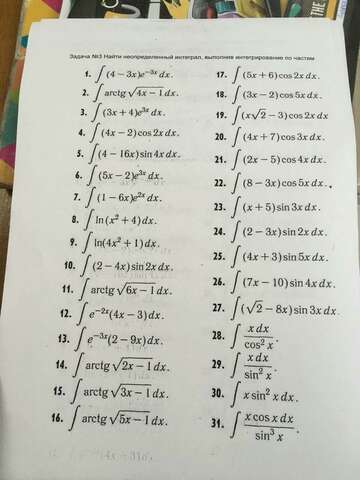 Задача №3 Найти неопределенный интеграл, выполните интегрирование по частям
1. ∫(4 − 3x)e^{−3x} dx.
2. ∫ arctg √(4x − 1) dx.
3. ∫(3x + 4)e^{3x} dx.
4. ∫(4x − 2) cos 2x dx.
5. ∫(4 − 16x) sin 4x dx.
6. ∫(5x − 2)e^{3x} dx.
7. ∫(1 − 6x)e^{2x} dx.
8. ∫ ln(x² + 4) dx.
9. ∫ ln(4x² + 1) dx.
10. ∫(2 − 4x) sin 2x dx.
11. ∫ arctg √(6x − 1) dx.
12. ∫ e^{−2x}(4x − 3) dx.
13. ∫ e^{−3x}(2 − 9x) dx.
14. ∫ arctg √(2x − 1) dx.
15. ∫ arctg √(3x − 1) dx.
16. ∫ arctg √(5x − 1) dx.
17. ∫(5x + 6) cos 2x dx.
18. ∫(3x − 2) cos 5x dx.
19. ∫(x√2 − 3) cos 2x dx
20. ∫(4x + 7) cos 3x dx.
21. ∫(2x − 5) cos 4x dx.
22. ∫(8 − 3x) cos 5x dx.
23. ∫(x + 5) sin 3x dx.
24. ∫(2 − 3x) sin 2x dx.
25. ∫(4x + 3) sin 5x dx.
26. ∫(7x − 10) sin 4x dx.
27. ∫(√2 − 8x) sin 3x dx.
28. ∫ x dx / cos² x.
29. ∫ x dx / sin² x.
30. ∫ x sin² x dx.
31. ∫ x cos x dx / sin³ x.